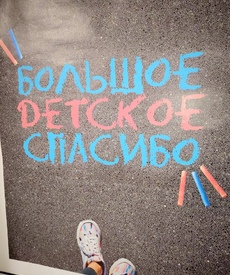 БОЛЬШОЕ
ДЕТСКОЕ
СПАСИБО